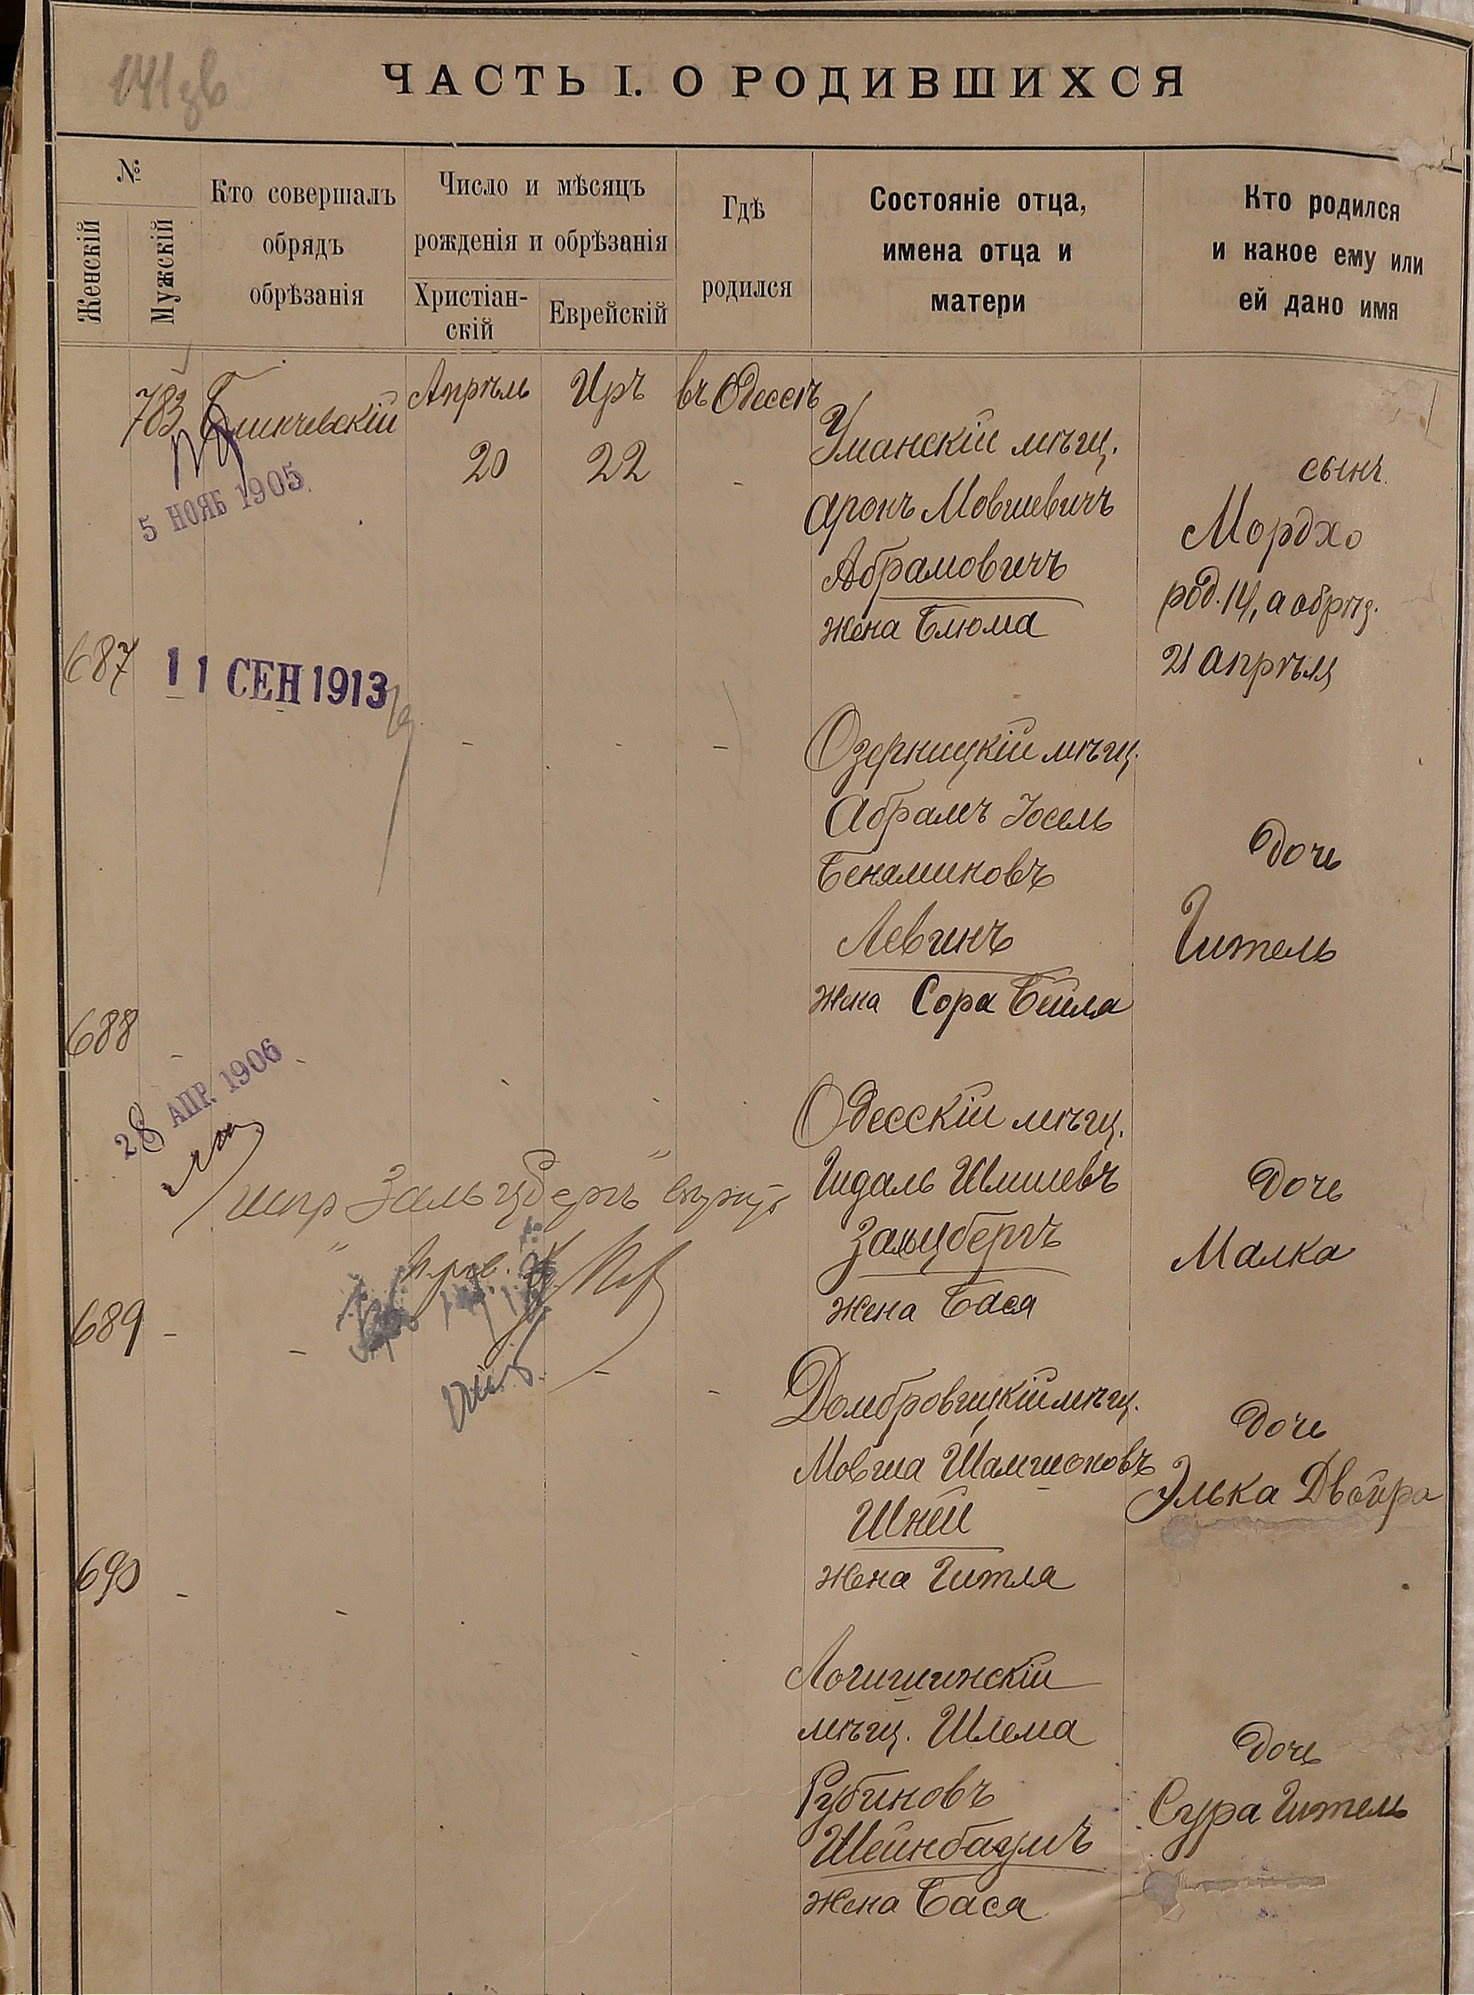 141 зв
ЧАСТЬ I. О РОДИВШИХСЯ
№
Женскій
Мужскій
Кто совершалъ
обрядъ
обрѣзанія
Число и мѣсяцъ
рожденія и обрѣзанія
Христіан-
скій
Еврейскій
Гдѣ
родился
Состояніе отца,
имена отца и
матери
Кто родился
и какое ему или
ей дано имя
783
Блинчевскій
Апрѣль
20
Иръ
22
въ Одессѣ
Уманскій мѣщ.
Аронъ Мовшевичъ
Абрамовичъ
жена Блюма
сынъ
Мордхо
род. 14, а обрѣз.
21 апрѣля
5 НОЯБ 1905
687
11 СЕН 1913
Озерницкій мѣщ.
Абрамъ Іосель
Беняминовъ
Левинъ
жена Сора Бейла
дочь
Гитель
688
28 АПР. 1906
Одесскій мѣщ.
Гидаль Шмилевъ
Зальцбергъ
жена Бася
дочь
Малка
"Зальцбергъ"
689
Домбровицкій мѣщ.
Мовша Шамшоновъ
Шней
жена Гитля
дочь
Элька Двойра
690
Логишинскій
мѣщ. Шлема
Рубиновъ
Шейнбаумъ
жена Бася
дочь
Сура Гитель